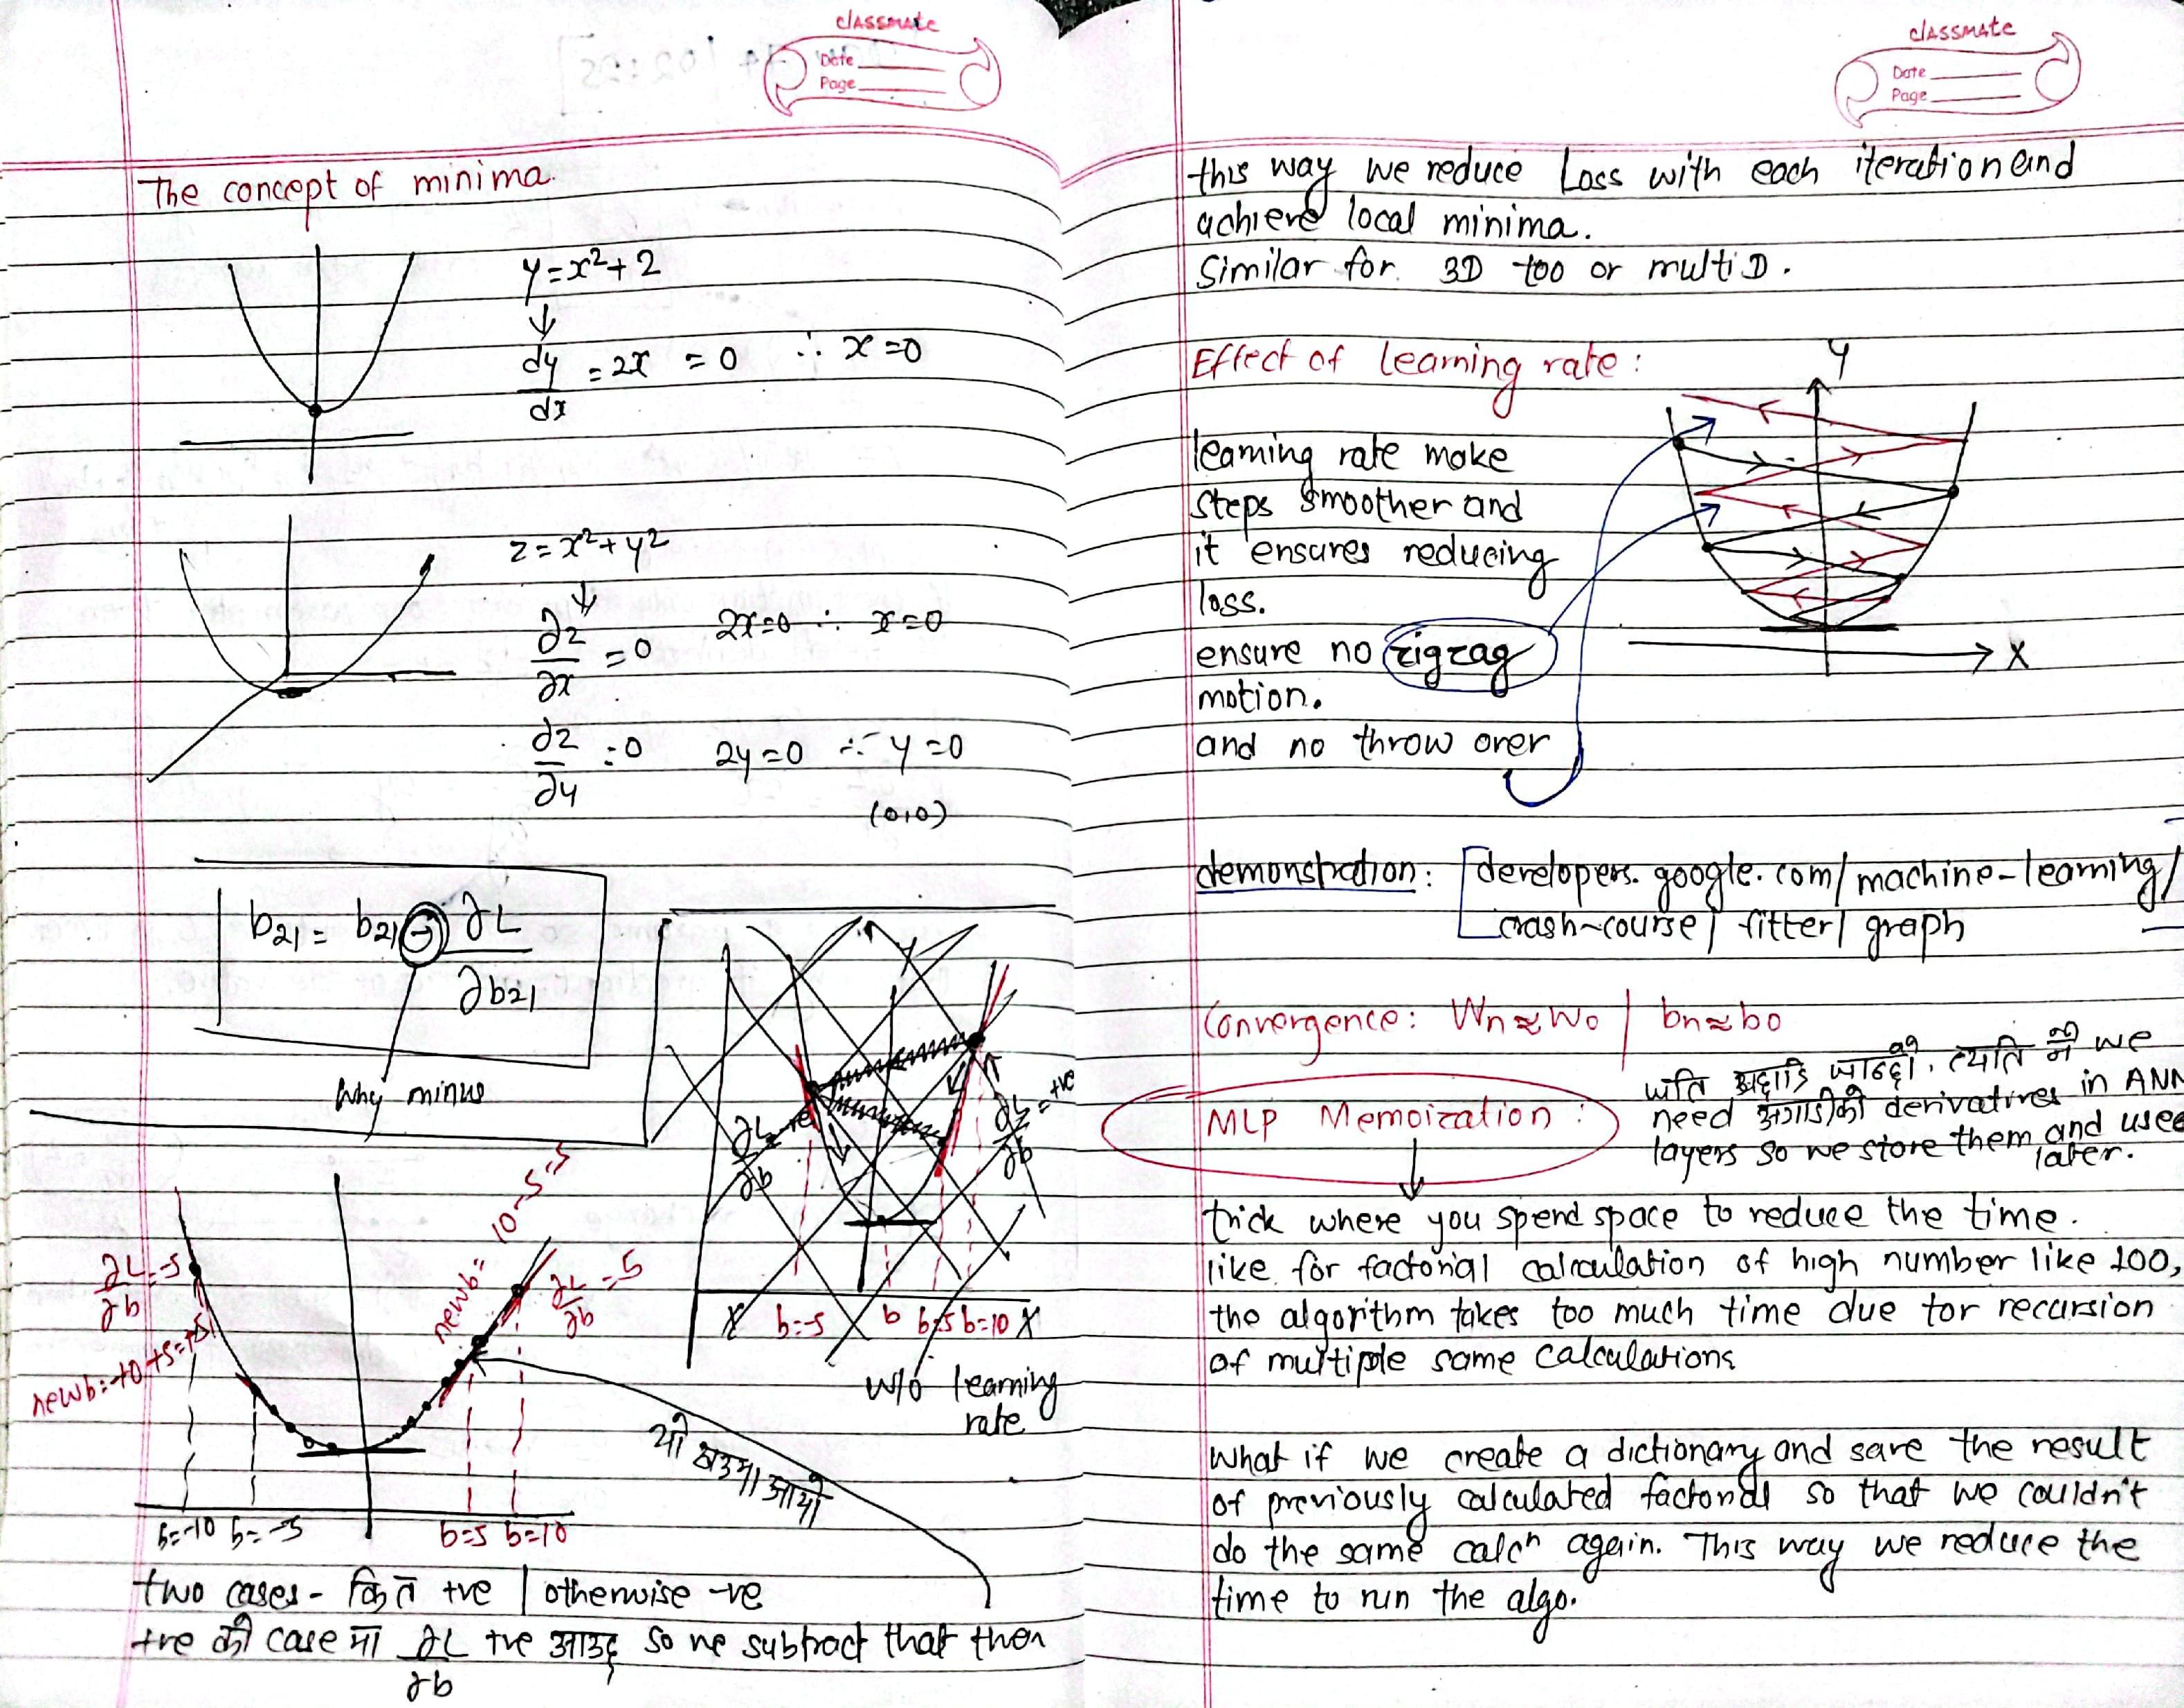 classmate
Date
Page
The concept of minima.
y = x² + 2
↓
dy/dx = 2x = 0 ∴ x = 0
z = x² + y²
↓
∂z/∂x = 0 2x=0 ∴ x=0
∂z/∂y = 0 2y=0 ∴ y=0
(0,0)
b21 = b21 - ∂L/∂b21
Why minus
∂L/∂b = -ve
∂L/∂b = +ve
X b=-5 b b=5 b=10 X
w/o learning
rate
∂L/∂b = -5
newb = 10-5=5
∂L/∂b = 5
यो
आयो
b=-10 b=-5 b=5 b=10
two cases - कित +ve | otherwise -ve
+ve को case मा ∂L/∂b +ve आउछ so we subtract that then
classmate
Date
Page
this way we reduce Loss with each iteration and
achieve local minima.
Similar for 3D too or multi D.
Effect of learning rate:
Y
learning rate make
steps smoother and
it ensures reducing
loss.
ensure no zigzag
X
motion.
and no throw over
demonstration: developers.google.com/machine-learning/
crash-course/fitter/graph
Convergence: Wn≈Wo | bn≈bo
we
MLP Memoization :
need अगाडीको derivatives in ANN
layers so we store them and use
later.
↓
trick where you spend space to reduce the time.
like for factorial calculation of high number like 100,
the algorithm takes too much time due tor recursion
of multiple same calculations
What if we create a dictionary and save the result
of previously calculated factorial so that we couldn't
do the same calcⁿ again. This way we reduce the
time to run the algo.